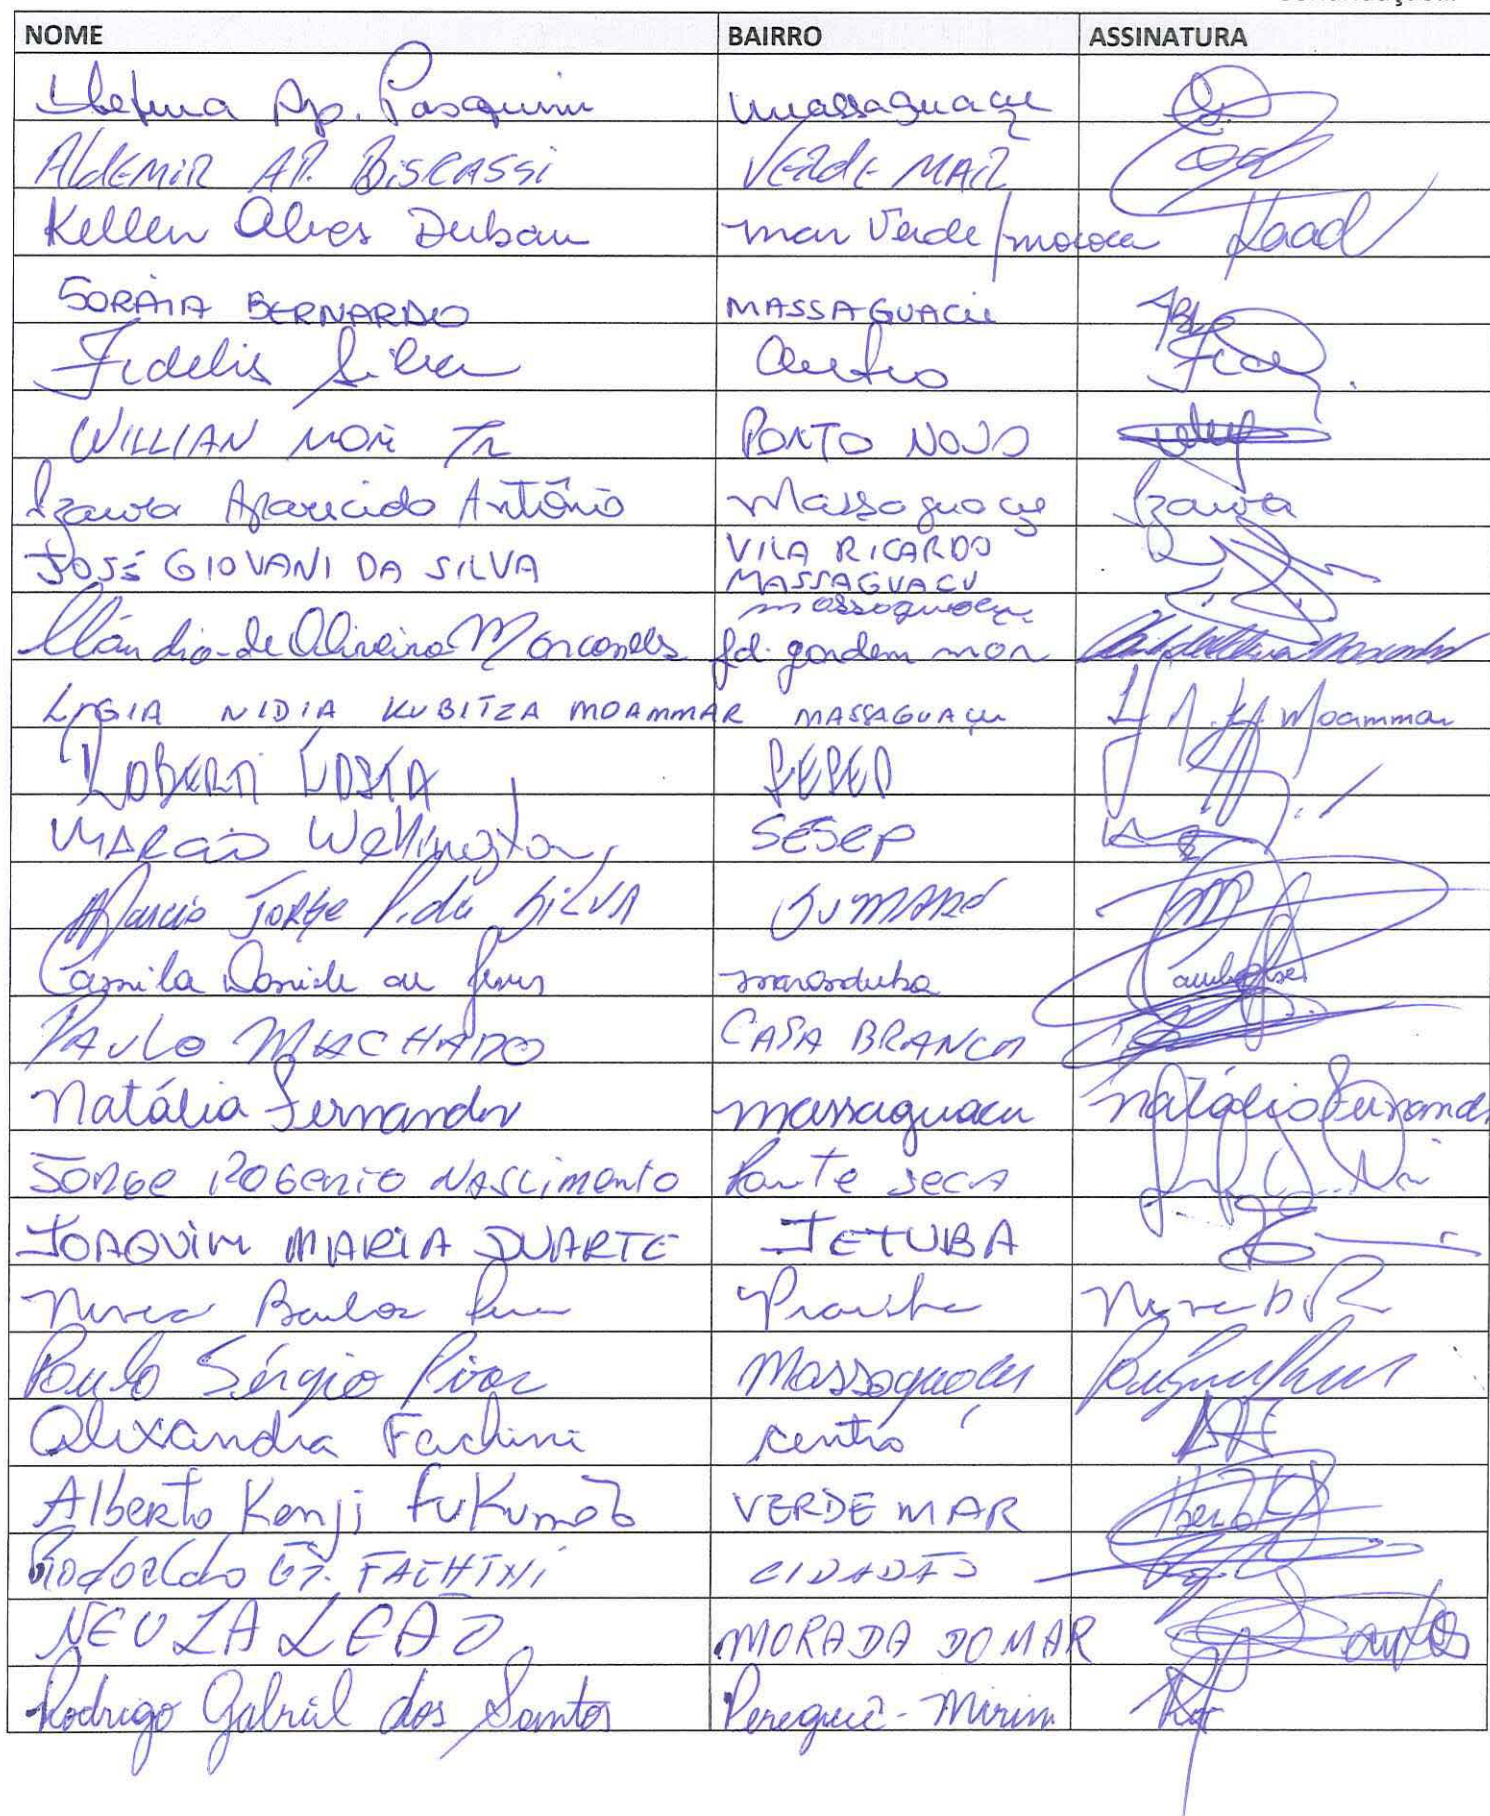 NOME BAIRRO ASSINATURA
Ap. Pasquini massaguaçu
AldEMiR AP. BiSCASSi VERdE MAR
Kellen Alves Duban mar Verde/mococa Kaad
SORAIA BERNARDO MASSAGUACU
Fidelis Silva Centro
WILLIAN MORI JR PORTO NOVO
Izaura Aparecido Antônio Massaguaçu Izaura
JOSÉ GIOVANI DA SILVA VILA RICARDO
MASSAGUACU
massaguaçu
Cláudia de Oliveira Marcondes jd. gardem mar
LYGIA NIDIA KUBITZA MOAMMAR MASSAGUAÇU L N K Moammar
ROBERTO COSTA SESEP
MARCIO Wellington SESEP
Marcio JORGE P. da SILVA SUMARÉ
Camila maranduba
PAULO MACHADO CASA BRANCA
Natália Fernandes massaguacu Natália Fernandes
JORGE ROGERIO NASCIMENTO Ponte SECA
JOAQUIM MARIA DUARTE JETUBA
Prainha
Paulo Sérgio Massaguaçu
Alixandra Fachini centro
Alberto Kenji FuKumoto VERDE MAR
FACHINI CIDADÃO
NEUZA LEÃO MORADA DO MAR
Rodrigo Gabriel dos Santos Perequê-Mirim